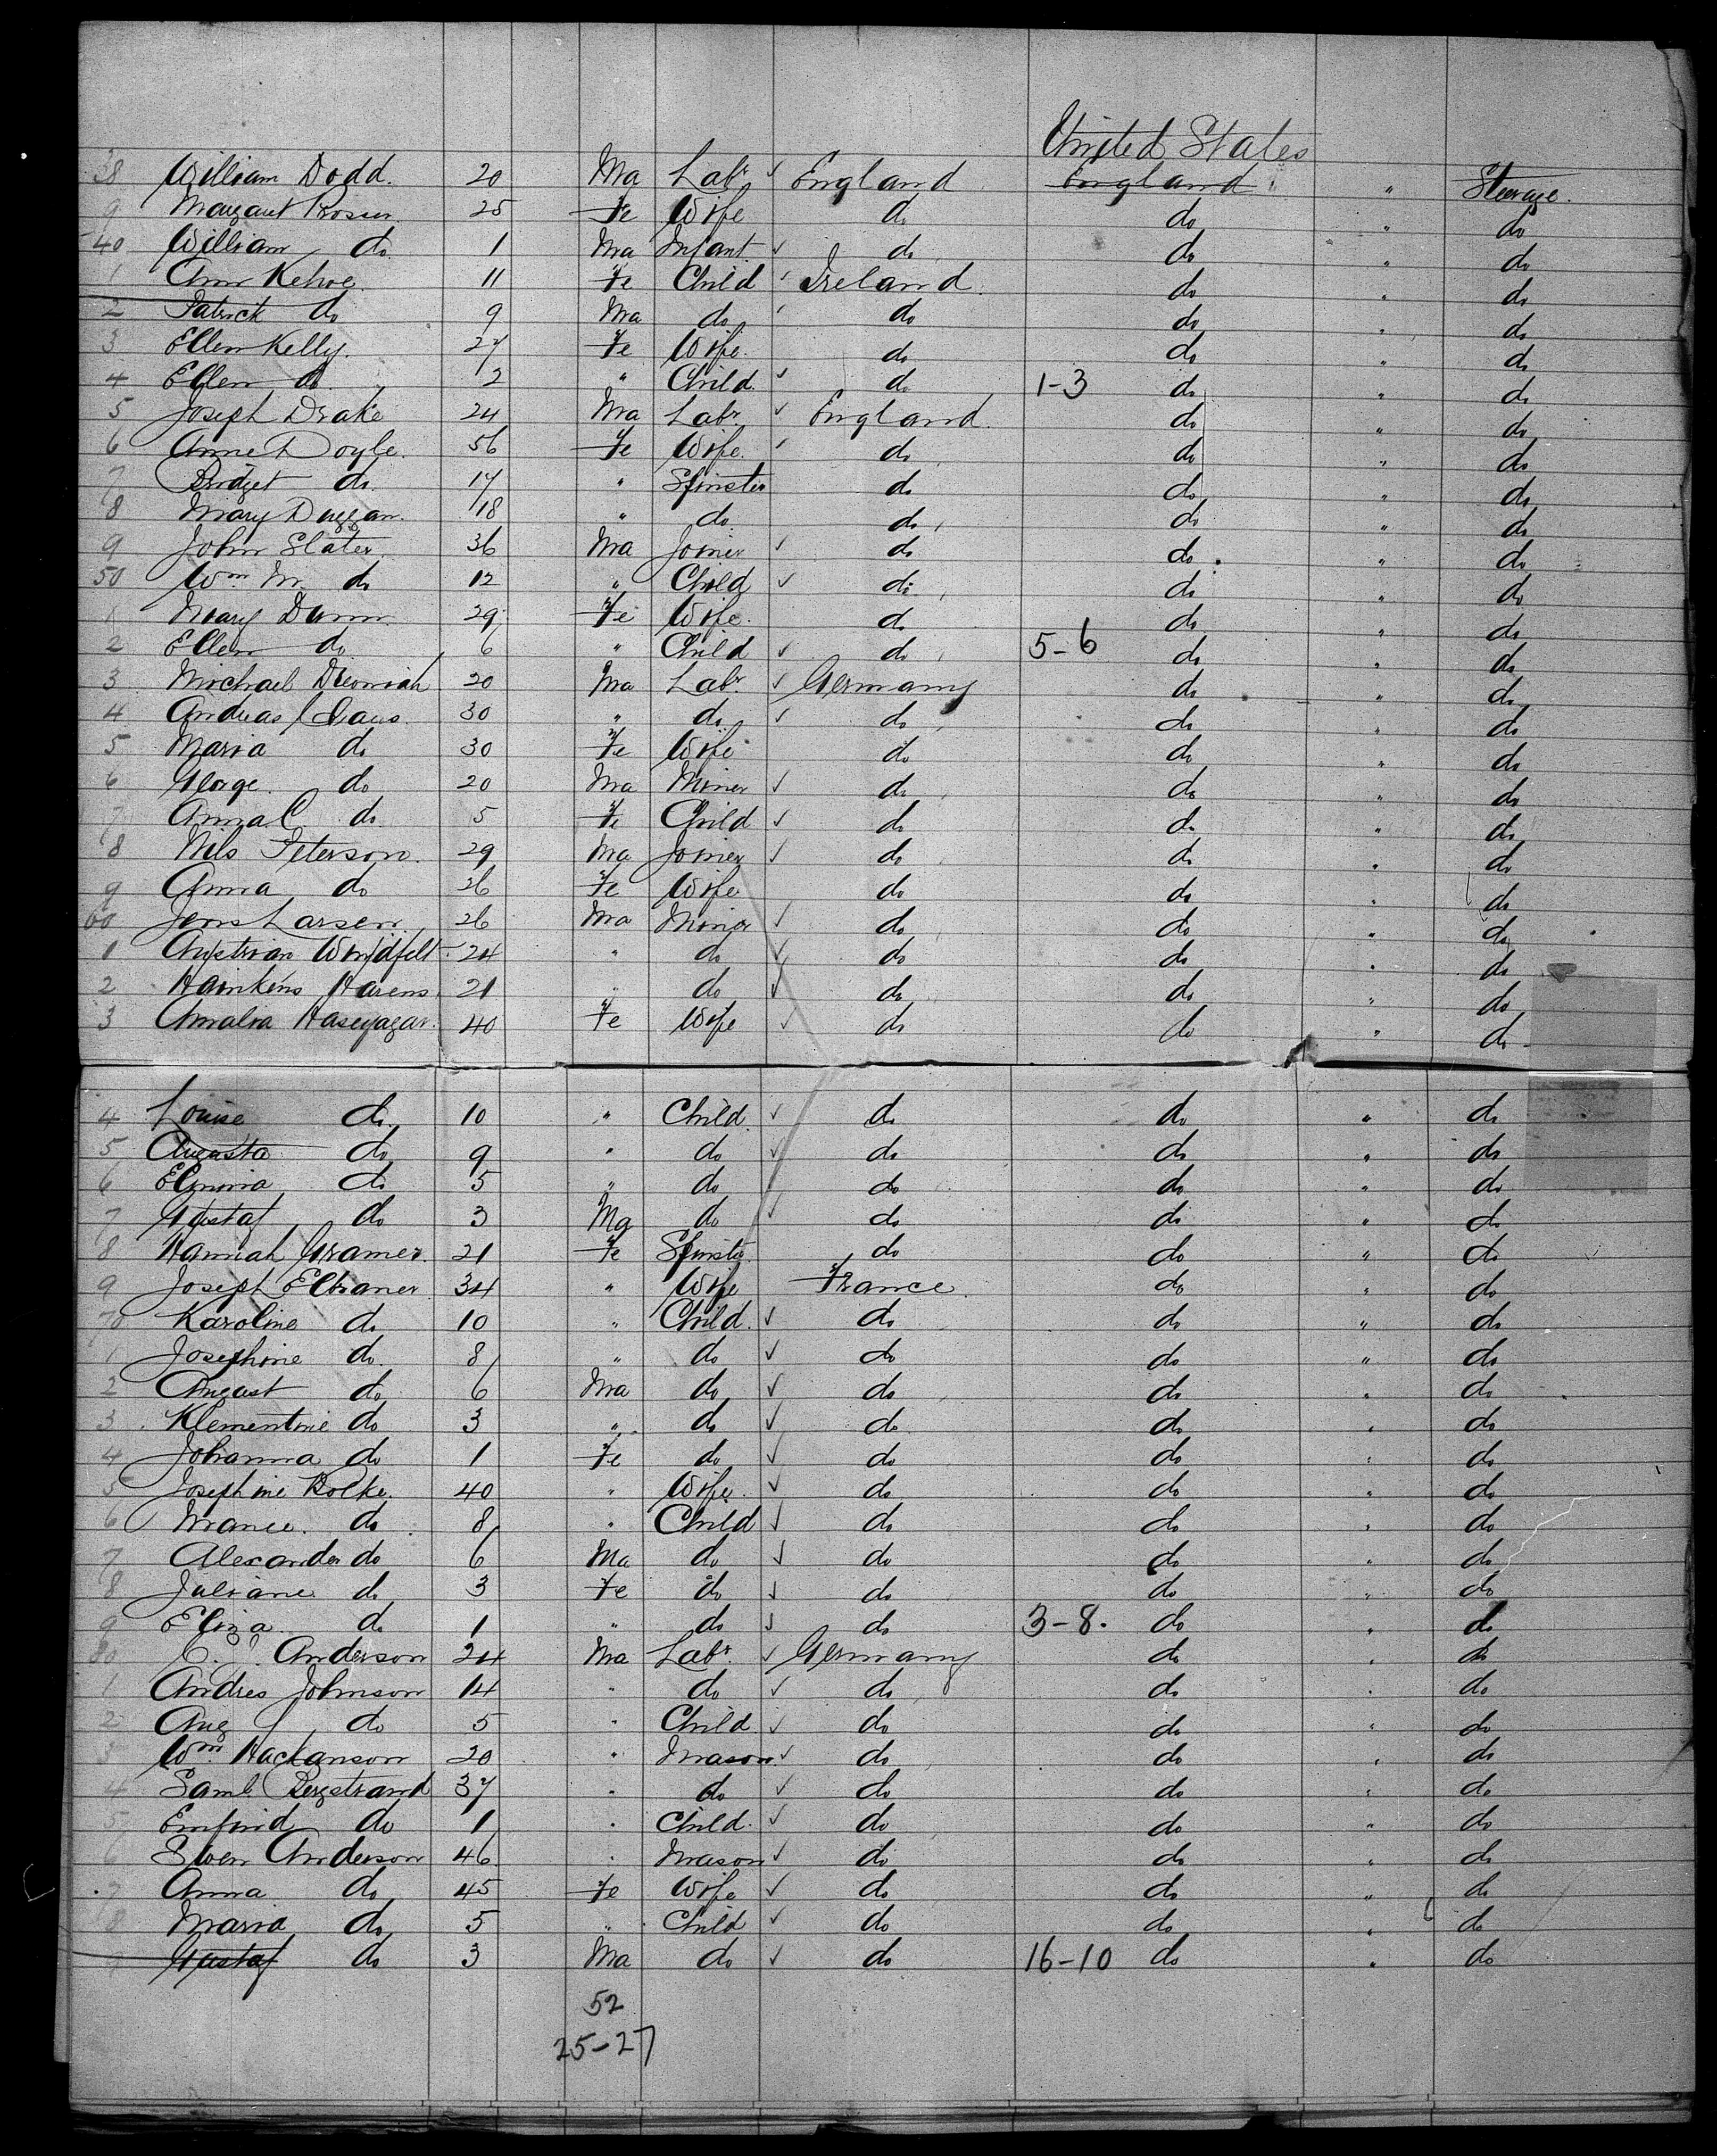 United States
38 William Dodd. 20 Ma Labr ✓ England England " Steerage.
9 Margaret 25 Fe Wife do do " do
40 William do 1 Ma Infant ✓ do do " do
1 Ann Kehoe 11 Fe Child ✓ Ireland do " do
2 Patrick do 9 Ma do ✓ do do " do
3 Ellen Kelly. 27 Fe Wife do do " do
4 Ellen do 2 " Child ✓ do 1-3 do " do
5 Joseph Drake 24 Ma Labr ✓ England do " do
6 Anne Doyle. 56 Fe Wife. ✓ do do " do
7 Bridget do 17 " Spinster do do " do
8 Mary Duggan. 18 " do do do " do
9 John Slater. 36 Ma Joiner ✓ do do " do
50 Wm M. do 12 " Child ✓ do do " do
1 Mary Dunn 29 Fe Wife. do do " do
2 Ellen do 6 " Child ✓ do 5-6 do " do
3 Michael 20 Ma Labr ✓ Germany do " do
4 Andreas 30 " do ✓ do do " do
5 Maria do 30 Fe Wife do do " do
6 George. do 20 Ma Miner ✓ do do " do
7 Anna C do 5 Fe Child ✓ do do " do
8 Nils Peterson. 29 Ma Joiner ✓ do do " do
9 Anna do 26 Fe Wife do do " do
60 Jens Larsen 26 Ma Miner ✓ do do " do
1 24 " do ✓ do do " do
2 Harens 21 " do ✓ do do " do
3 Amalia 40 Fe Wife ✓ do do " do
4 Louise do 10 " Child ✓ do do " do
5 Augusta do 9 " do ✓ do do " do
6 do 5 " do do do " do
7 Gustaf do 3 Ma do ✓ do do " do
8 Hannah Gramer. 21 Fe Spinstr do do " do
9 Joseph 34 " Wife France do " do
70 Karoline do 10 " Child. ✓ do do " do
1 Josephine do 8 " do ✓ do do " do
2 August do 6 Ma do ✓ do do " do
3 Klementine do 3 " do ✓ do do " do
4 Johanna do 1 Fe do ✓ do do " do
5 Josephine Bolke. 40 " Wife. ✓ do do " do
6 do 8 " Child ✓ do do " do
7 Alexander do 6 Ma do ✓ do do " do
8 Juliane do 3 Fe do ✓ do do " do
9 Eliza do 1 " do ✓ do 3-8. do " do
80 C. J. Anderson 24 Ma Labr ✓ Germany do " do
1 Andres Johnson 14 " do ✓ do do " do
2 Aug do 5 " Child ✓ do do " do
3 Wm Hackanson 20 " Mason ✓ do do " do
4 Saml Bergstrand 37 " do ✓ do do " do
5 do 1 " Child. ✓ do do " do
6 Swen Anderson 46 " Mason ✓ do do " do
7 Anna do 45 Fe Wife ✓ do do " do
8 Maria do 5 " Child ✓ do do " do
9 Gustaf do 3 Ma do ✓ do 16-10 do " do
52
25-27